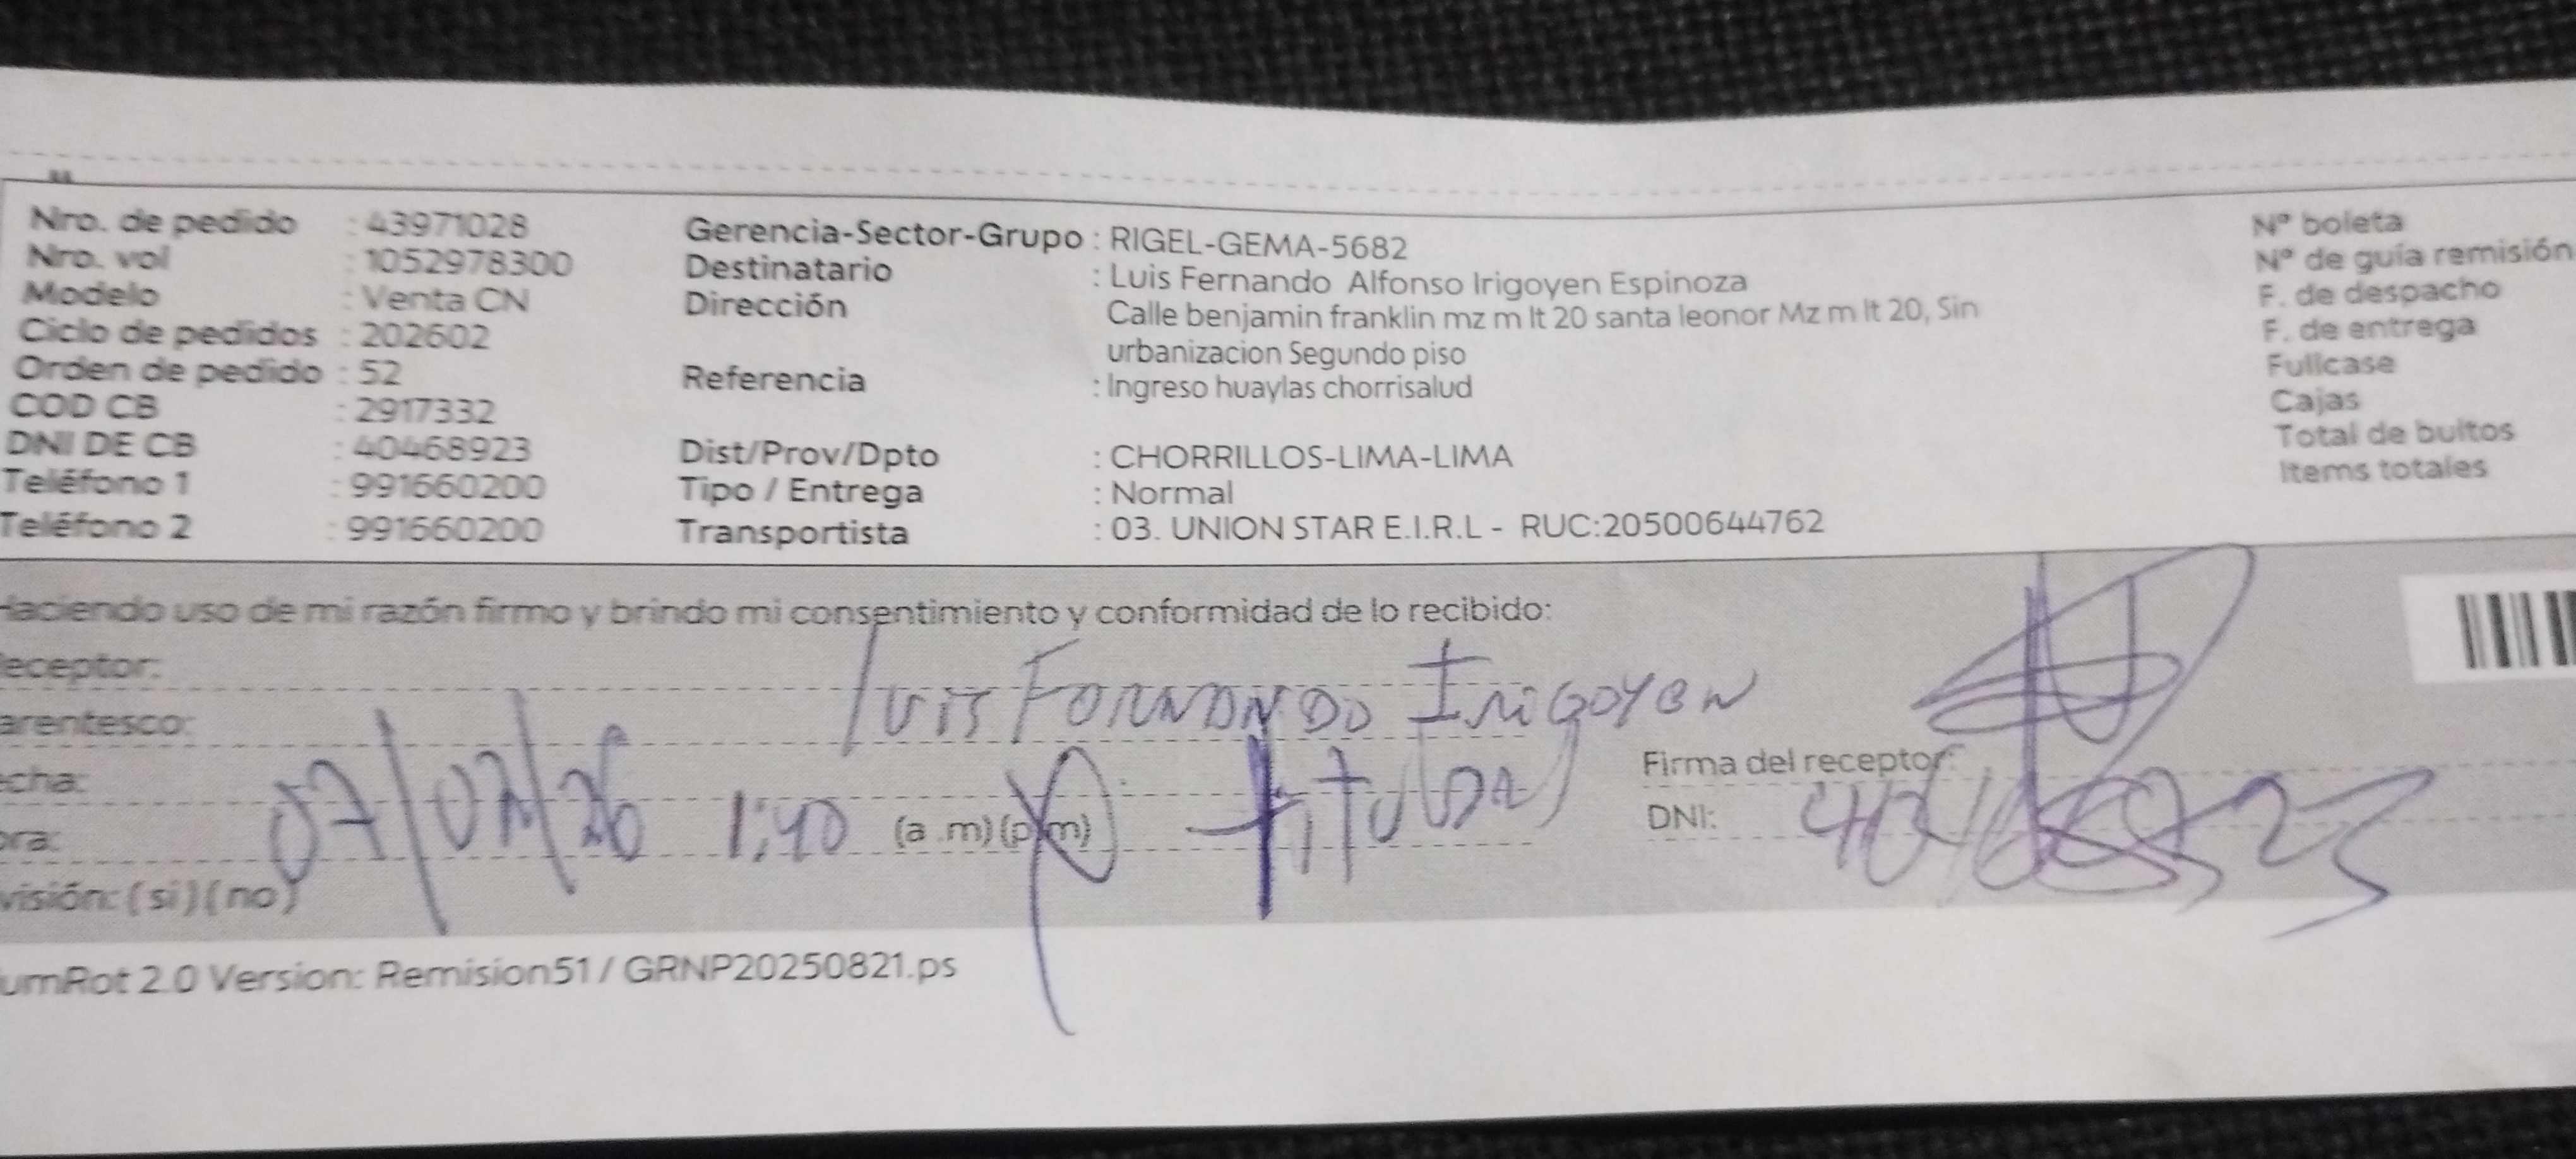 Nro. de pedido : 43971028
Nro. vol : 1052978300
Modelo : Venta CN
Ciclo de pedidos : 202602
Orden de pedido : 52
COD CB : 2917332
DNI DE CB : 40468923
Teléfono 1 : 991660200
Teléfono 2 : 991660200
Gerencia-Sector-Grupo : RIGEL-GEMA-5682
Destinatario : Luis Fernando Alfonso Irigoyen Espinoza
Dirección Calle benjamin franklin mz m lt 20 santa leonor Mz m lt 20, Sin
urbanizacion Segundo piso
Referencia : Ingreso huaylas chorrisalud
Dist/Prov/Dpto : CHORRILLOS-LIMA-LIMA
Tipo / Entrega : Normal
Transportista : 03. UNION STAR E.I.R.L - RUC:20500644762
Nº boleta
Nº de guía remisión
F. de despacho
F. de entrega
Fullcase
Cajas
Total de bultos
Items totales
Haciendo uso de mi razón firmo y brindo mi consentimiento y conformidad de lo recibido:
eceptor: Luis Fernando Irigoyen
arentesco: titular
echa: 07/02/26
ora: 1:40 (a .m) (p.m)
visión: (si) (no)
Firma del receptor:
DNI:
umRot 2.0 Version: Remision51 / GRNP20250821.ps